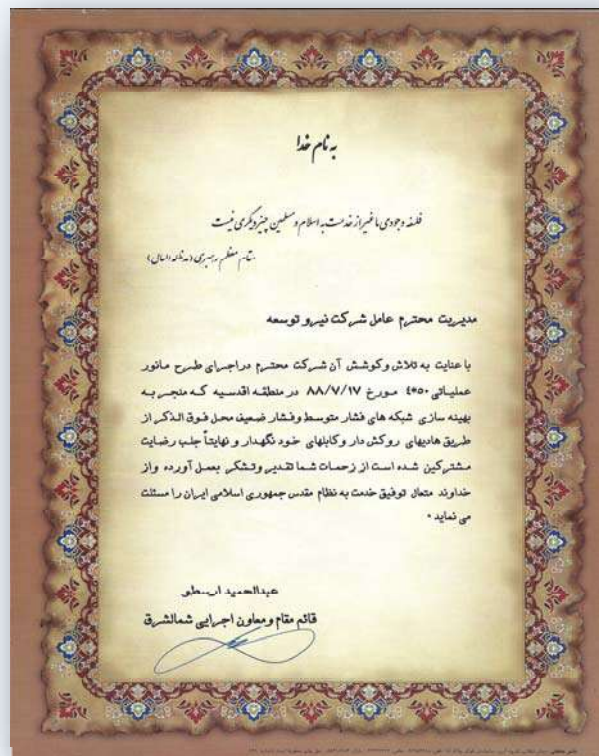 به نام خدا
فلسفه وجودی ما غیر از خدمت به اسلام و مسلمین چیز دیگری نیست
مقام معظم رهبری (مدظله العالی)
مدیریت محترم عامل شرکت نیرو توسعه
با عنایت به تلاش وکوشش آن شرکت محترم دراجرای طرح مانور
عملیاتی ۵۰*۴ مورخ ۸۸/۷/۱۷ در منطقه اقدسیه که منجر به
بهینه سازی شبکه های فشار متوسط وفشار ضعیف محل فوق الذکر از
طریق هادیهای روکش دار وکابلهای خود نگهدار و نهایتاً جلب رضایت
مشترکین شده است از زحمات شما تقدیر وتشکر بعمل آورده واز
خداوند متعال توفیق خدمت به نظام مقدس جمهوری اسلامی ایران را مسئلت
می نماید .
عبدالحمید ارسطو
قائم مقام ومعاون اجرایی شمالشرق